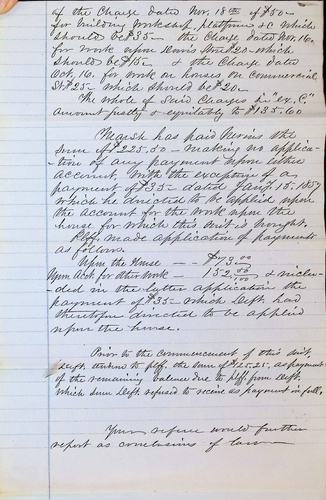 of the Charge dated Nov. 18th of $50—
for building Workshop, platform &C which
should be $35— the Charge dated Nov. 16.
for work upon Nevins Store $20— which
should be $15— & the Charge dated
Oct. 16. for work on houses on Commercial
St $25— which should be $20—
The whole of said Charges in "ex. C."
amount justly & equitably to $135.60
Marsh has paid Nevins the
sum of $225.50— making no applica-
-tion of any payment upon either
account. With the exception of a
payment of $35— dated Jany. 15. 1857
which he directed to be applied upon
the account for the work upon the
house for which this suit is brought.
Plff. made application of payments
as follows.
Upon the House — — $73.00
Upon Acct. for other Work — 152.50 & inclu-
-ded in the latter application the
payment of $35— which Deft. had
theretofore directed to be applied
upon the house.
Prior to the commencement of this suit.
Deft. tendered to plff. the sum of $125.25. as payment
of the remaining balance due to plff. from Deft.
which sum Deft. refused to receive as payment in full.
Your referee would further
report as conclusions of law—